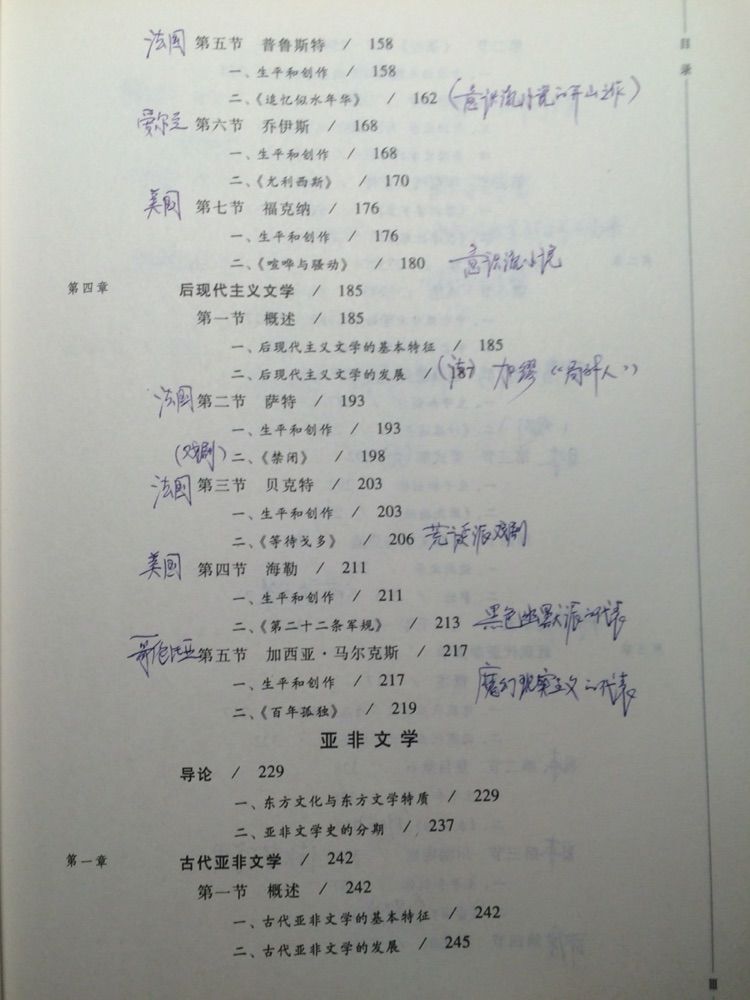 目录
法国 第五节 普鲁斯特 / 158
一、生平和创作 / 158
二、《追忆似水年华》 / 162 (意识流小说的开山之作)
爱尔兰 第六节 乔伊斯 / 168
一、生平和创作 / 168
二、《尤利西斯》 / 170
美国 第七节 福克纳 / 176
一、生平和创作 / 176
二、《喧哗与骚动》 / 180 意识流小说
第四章 后现代主义文学 / 185
第一节 概述 / 185
一、后现代主义文学的基本特征 / 185
二、后现代主义文学的发展 / (法) 加缪《局外人》
法国 第二节 萨特 / 193
一、生平和创作 / 193
(戏剧) 二、《禁闭》 / 198
法国 第三节 贝克特 / 203
一、生平和创作 / 203
二、《等待戈多》 / 206 荒诞派戏剧
美国 第四节 海勒 / 211
一、生平和创作 / 211
二、《第二十二条军规》 / 213 黑色幽默派的代表
哥伦比亚 第五节 加西亚·马尔克斯 / 217
一、生平和创作 / 217 魔幻现实主义的代表
二、《百年孤独》 / 219
亚非文学
导论 / 229
一、东方文化与东方文学特质 / 229
二、亚非文学史的分期 / 237
第一章 古代亚非文学 / 242
第一节 概述 / 242
一、古代亚非文学的基本特征 / 242
二、古代亚非文学的发展 / 245
III